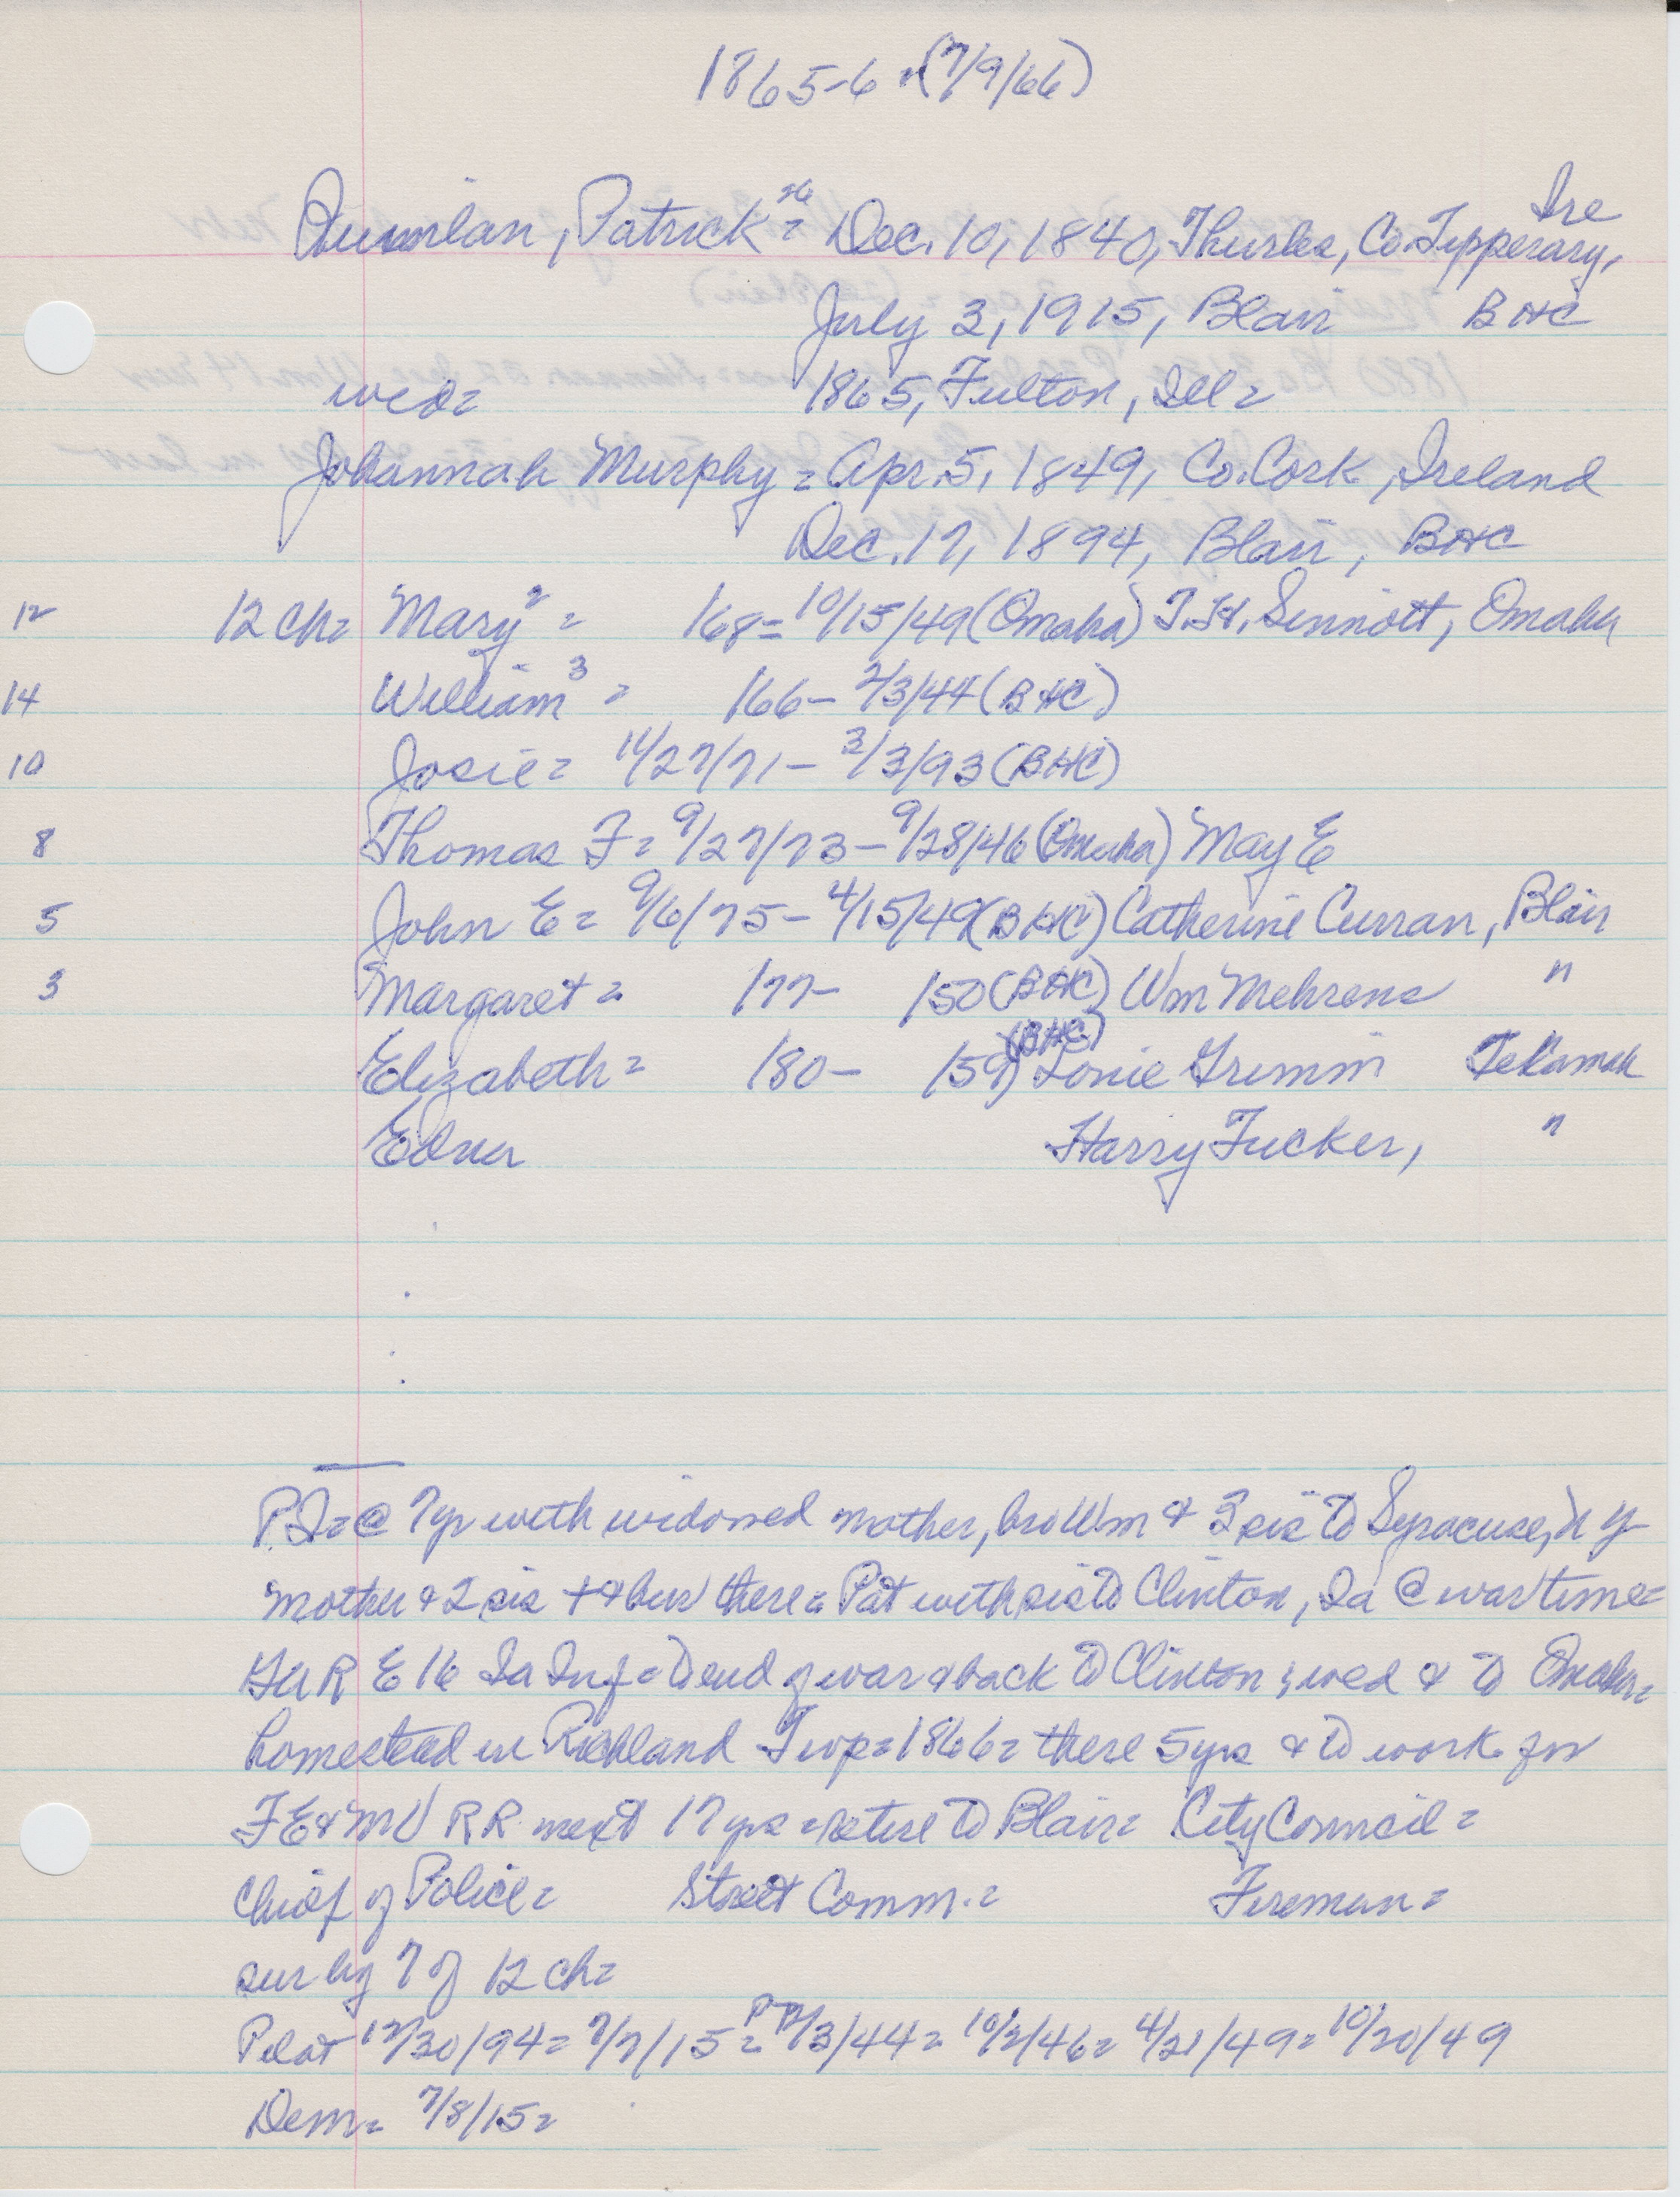 1865-6 (7/9/66)
Quinnlan, Patrick = Dec. 10, 1840, Thurles, Co. Tipperary, Ire
July 3, 1915, Blair BHC
wed= 1865, Fulton, Ill=
Johannah Murphy = Apr. 5, 1849, Co. Cork, Ireland
Dec. 17, 1894, Blair, BHC
12 12 ch= Mary² = /68= 10/15/49 (Omaha) T.H. Sinnott, Omaha
14 William³ = /66- 2/3/44 (BHC)
10 Josie= 11/27/71- 3/3/93 (BHC)
8 Thomas F= 9/27/73- 9/28/46 (Omaha) May E
5 John E= 9/6/75- 4/15/49 (BHC) Catherine Curran, Blair
3 Margaret= /77- /50 (BHC) Wm Mehrens "
Elizabeth= /80- /59 (BHC) Louie Grimm Tekamah
Edna Harry Tucker, "
@ 7 yr with widowed mother, bro Wm & 3 sis to Syracuse, N Y
mother & 2 sis + & bur there= Pat with sis to Clinton, Ia @ war time=
GAR E 16 Ia Inf= to end of war & back to Clinton, wed & to Omaha=
homestead in Richland Twp= 1866= there 5 yrs & to work for
FE&MV RR next 17 yrs= retire to Blair= City Council=
Chief of Police= Street Comm.= Fireman=
sur by 7 of 12 ch=
Pilot 12/30/94= 7/7/15= 2/3/44= 10/2/46= 4/21/49= 10/20/49
Dem= 7/8/15=